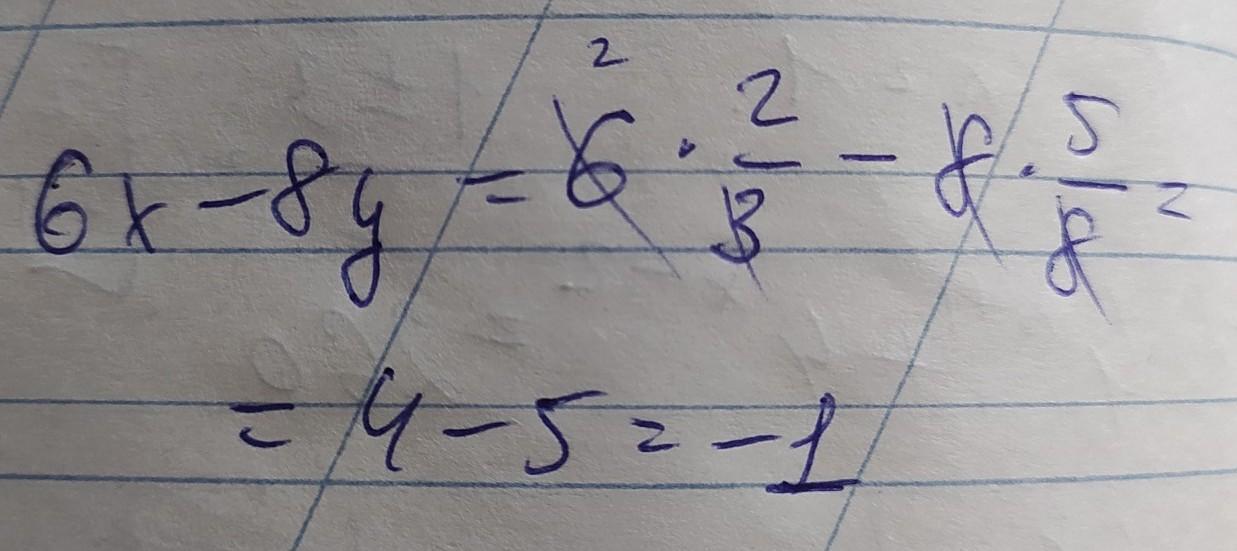 6x - 8y = 6² · 2/3 - 8 · 5/8 =
= 4 - 5 = -1